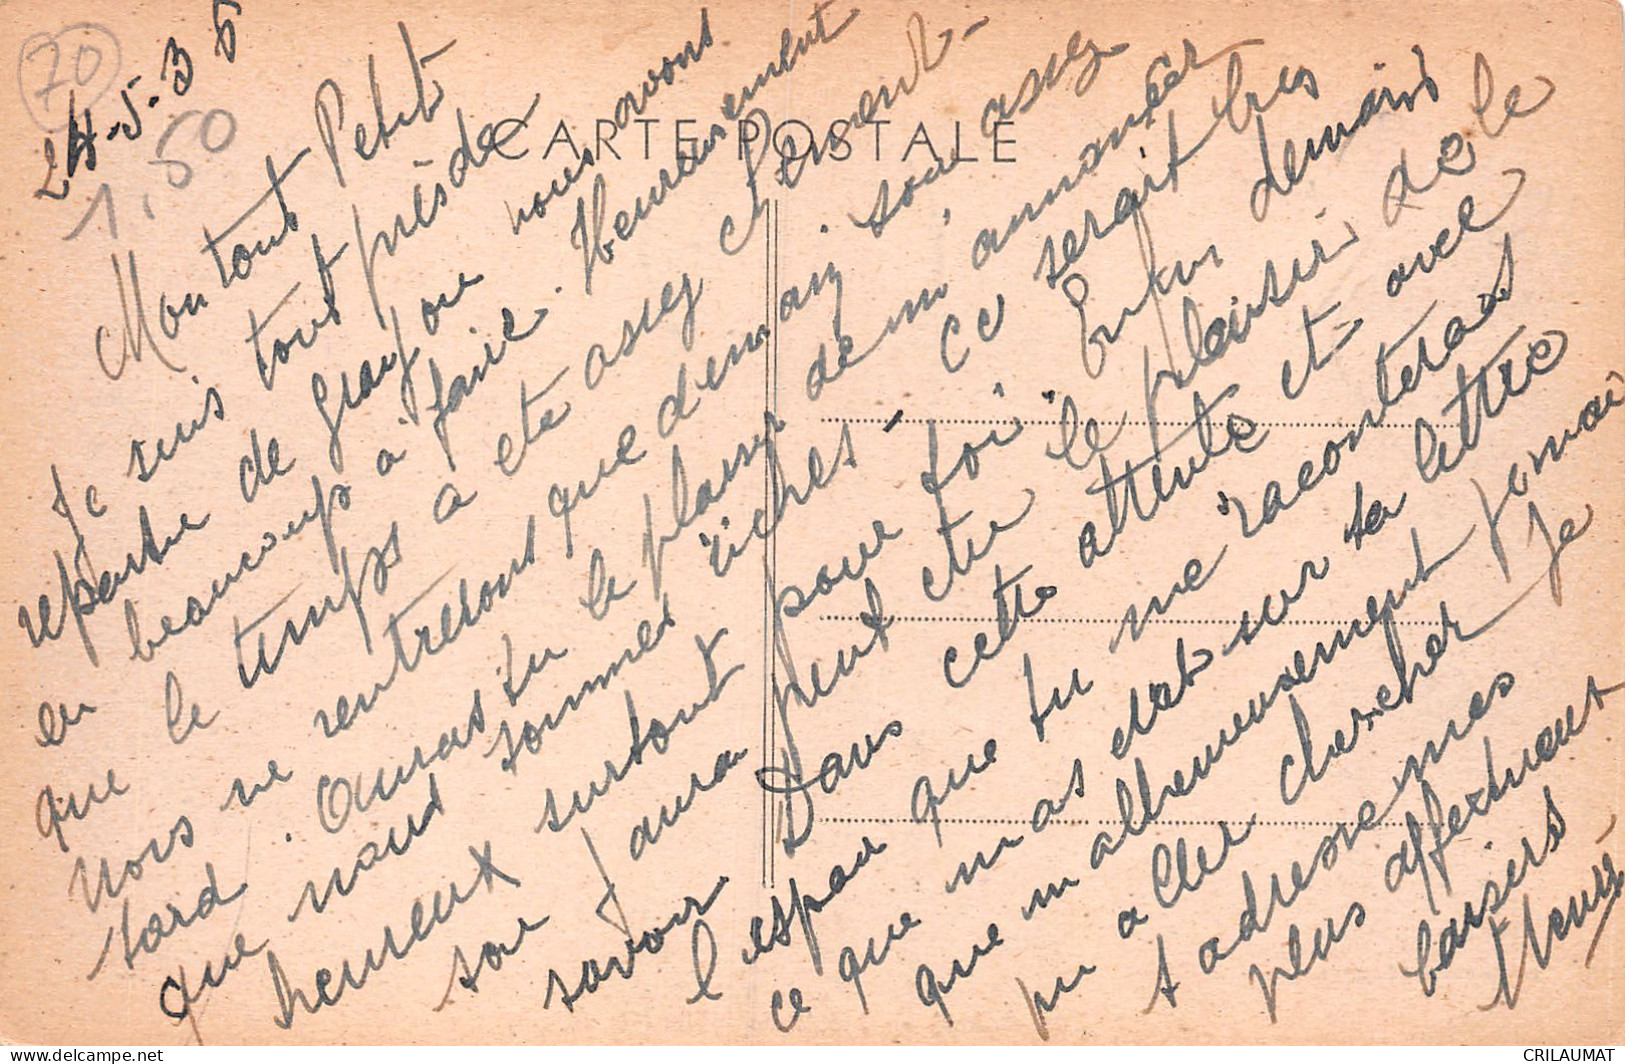 70
24-5-36
1,50
CARTE POSTALE
Mon tout Petit
Je suis tout près de
repartie de où nous avons
eu beaucoup à faire. Heureusement
que le temps a été assez clément-
Nous ne rentrerons que demain soir assez
tard. Auras tu le plaisir de m'annoncer
que nous sommes riches - ce serait très
heureux surtout pour toi. Enfin demain
soir j'aurai peut être le plaisir de le
savoir. Dans cette attente et avec
l'espoir que tu me raconteras
ce que m'as dit sur ta lettre
que malheureusement jamais
pu aller chercher Je
t adresse mes
plus affectueux
baisers
CRILAUMAT